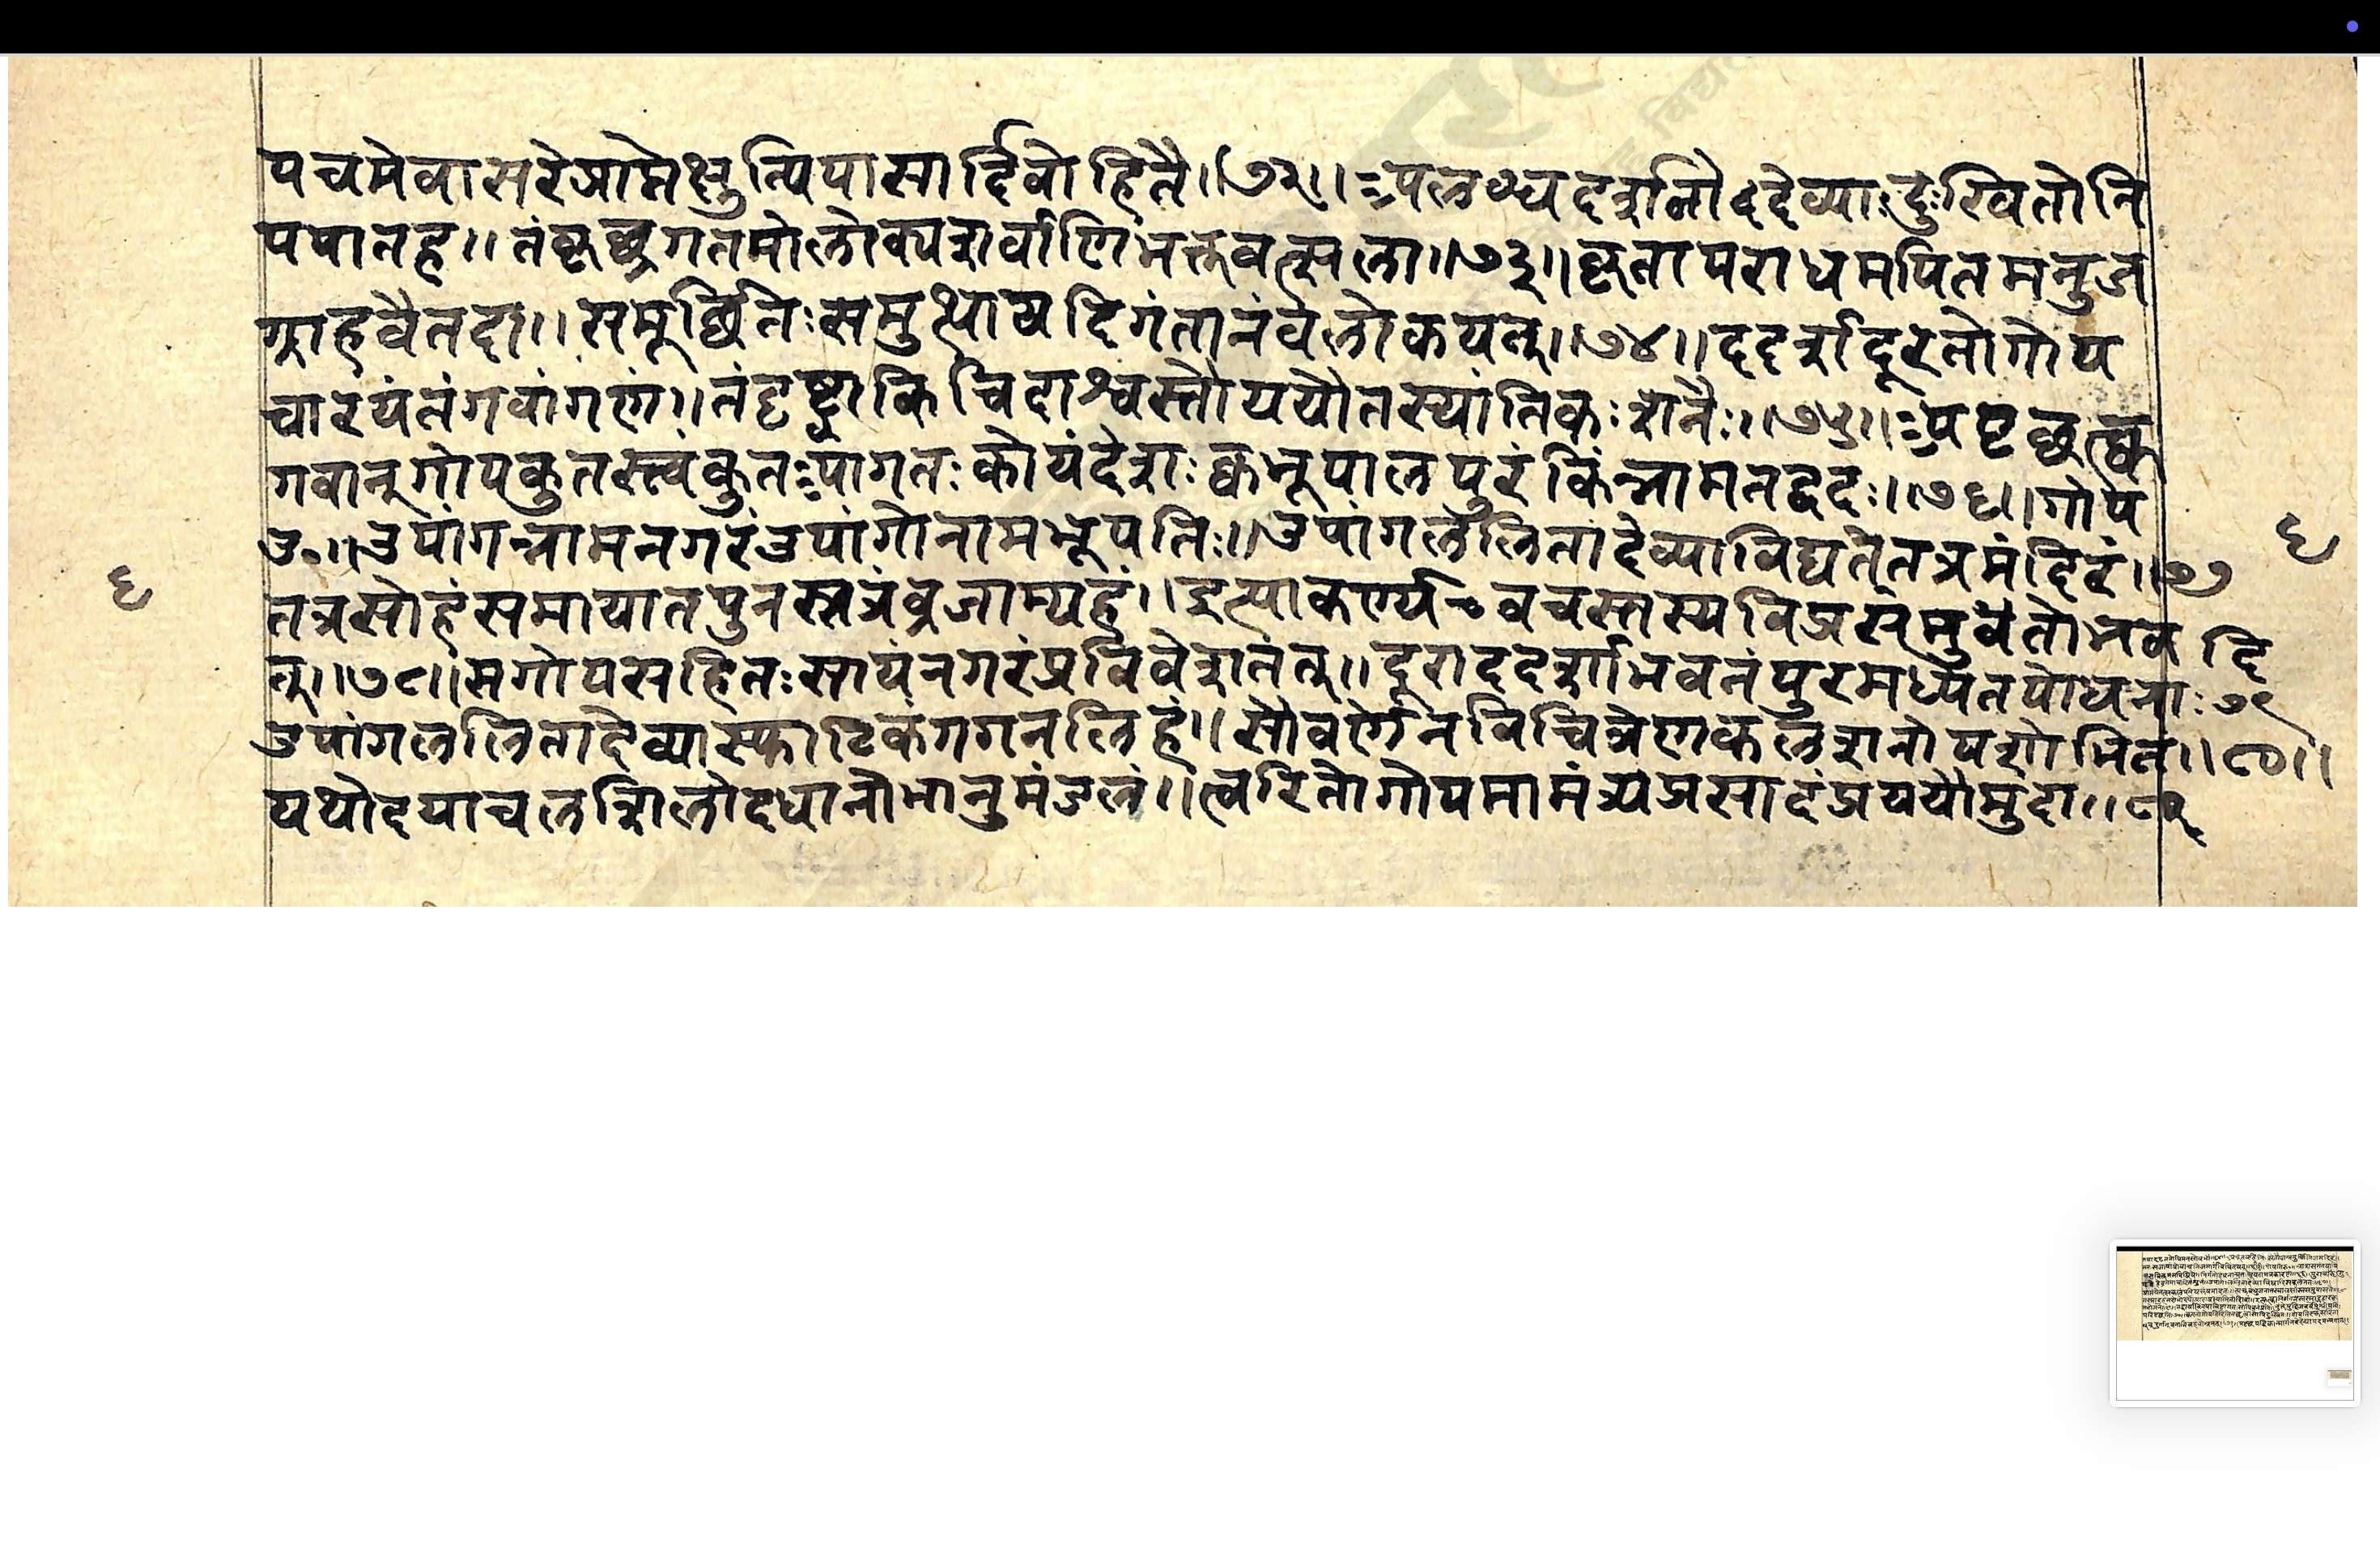 पचमेवासरेप्राप्तेक्षुत्पिपासार्दिवोहितै॥७२॥अपलब्धपदशुतौददेव्याःदुःखितोनि
पपातह॥तंकृछ्रगतमालोक्यशर्वाणिभक्तवत्सला॥७३॥कृतापराधमपितमनुज
ग्राहवैतदा॥समूर्छितःसमुत्थायदिगंतानंवलोकयन्॥७४॥ददर्शदूरतोगोप
चारयंतंगवांगणं॥तंदृष्ट्वाकिंचिदाश्वस्तोययौतस्यांतिकःशनैः॥७५॥अपृछत्क्व
गवान्गोपकुतस्त्वंकुतआगतःकोयंदेशःक्वभूपालपुरंकिंन्नामतद्वदः॥७६॥गोप
उ०॥उपांगन्नामनगरंउपांगोनामभूपतिः॥उपांगललितादेव्याविद्यतेतत्रमंदिरं॥७७
तत्रसोहंसमायातपुनस्तत्रंव्रजाम्यहं॥इत्याकर्ण्यवचस्तस्यविप्रस्मुवंतोभव
त्॥७८॥सगोपसहितःसायंनगरंप्रविवेशतत्॥दूराददर्शाभवनंपुरमध्येतपोधनाः७९
उपांगललितादेव्यास्फाटिकंगगनलिहं॥सौवर्णेनविचित्रेणकलशेनोपशोभित॥८०॥
यथोदयाचलशिलोदधानोभानुमंडलं॥त्वरितोगोपमामंत्र्यप्रसादंप्रययौमुदा॥८१
६
६
दि